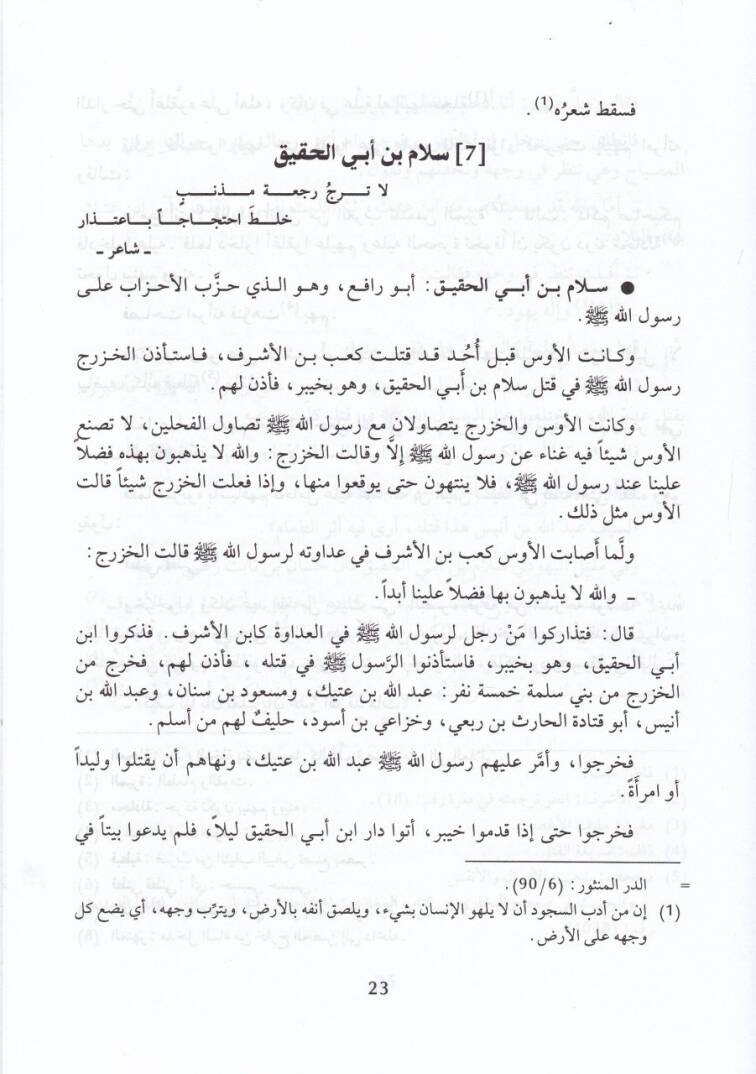 فسقط شعرُه(1).
[7] سلام بن أبي الحقيق
لا تـرجُ رجعـة مـذنـبٍ
خلـطَ احتجـاجـاً بـاعتـذار
ـ شاعر ـ
● سـلام بـن أبـي الحقيـق: أبـو رافـع، وهـو الـذي حـزَّب الأحـزاب علـى
رسول الله ﷺ.
وكـانـت الأوس قبـل أُحُـد قـد قتلـت كعـب بـن الأشـرف، فـاستـأذن الخـزرج
رسول الله ﷺ في قتل سلام بن أَبي الحقيق، وهو بخيبر، فأذن لهم.
وكانت الأوس والخزرج يتصاولان مع رسول الله ﷺ تصاول الفحلين، لا تصنع
الأوس شيئاً فيه غناء عن رسول الله ﷺ إلَّا وقالت الخزرج: والله لا يذهبون بهذه فضلاً
علينا عند رسول الله ﷺ، فلا ينتهون حتى يوقعوا منها، وإذا فعلت الخزرج شيئاً قالت
الأوس مثل ذلك.
ولَّما أَصابت الأوس كعب بن الأشرف في عداوته لرسول الله ﷺ قالت الخزرج:
ـ والله لا يذهبون بها فضلاً علينا أبداً.
قال: فتذاركوا مَنْ رجل لرسول الله ﷺ في العداوة كابن الأشرف. فذكروا ابن
أبـي الحقيـق، وهـو بخيبـر، فاستأذنوا الرَّسول ﷺ في قتله، فأذن لهم، فخرج من
الخزرج من بني سلمة خمسة نفر: عبد الله بن عتيك، ومسعود بن سنان، وعبد الله بن
أنيس، أبو قتادة الحارث بن ربعي، وخزاعي بن أسود، حليفٌ لهم من أسلم.
فخرجوا، وأمَّر عليهم رسول الله ﷺ عبد الله بن عتيك، ونهاهم أن يقتلوا وليداً
أو امرأَةً.
فخرجوا حتى إذا قدموا خيبر، أتوا دار ابن أبي الحقيق ليلاً، فلم يدعوا بيتاً في
= الدر المنثور: (90/6).
(1) إن من أدب السجود أن لا يلهو الإنسان بشيء، ويلصق أنفه بالأرض، ويترّب وجهه، أي يضع كل
وجهه على الأرض.
23